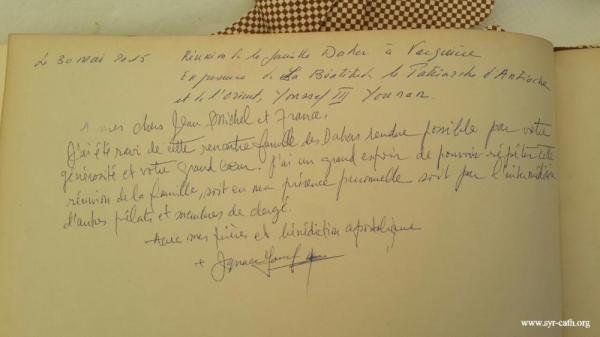 Le 30 mai 2015 Réunion de la famille Daher à
En présence de La Béatitude le Patriarche d'Antioche
et de l'Orient, Youssef III Younan.
A mes chers Jean Michel et France,
J'ai été ravi de cette rencontre famille des Dahers rendue possible par votre
générosité et votre grand cœur. J'ai un grand espoir de pouvoir répéter cette
réunion de la famille, soit en ma présence personnelle soit par l'intermédiaire
d'autres prélats et membres de clergé.
Avec mes prières et bénédiction apostolique
+ Ignace Youssef
www.syr-cath.org